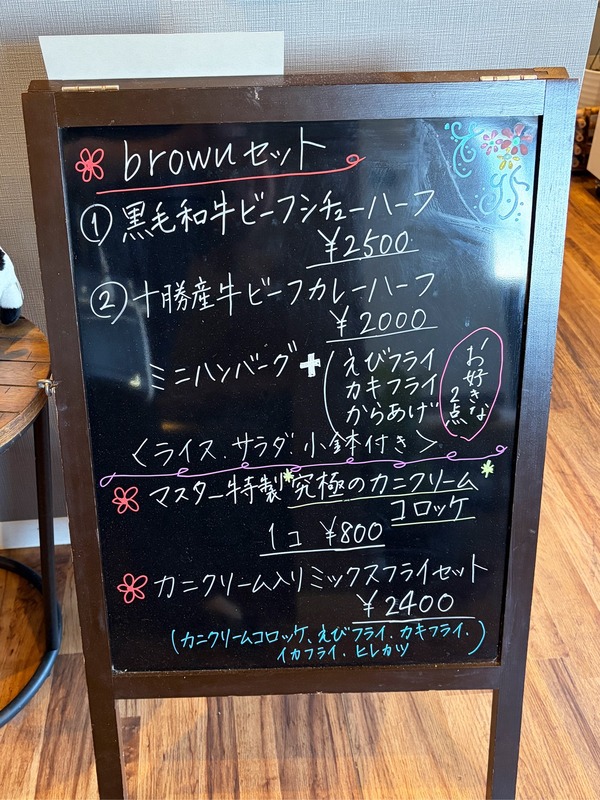 brownセット
① 黒毛和牛ビーフシチューハーフ
¥2500
② 十勝産牛ビーフカレーハーフ
¥2000
ミニハンバーグ+(えびフライ
カキフライ
からあげ
お好きな
2点
<ライス、サラダ、小鉢付き>
マスター特製*究極のカニクリーム*
コロッケ
1コ ¥800
カニクリーム入りミックスフライセット
¥2400
(カニクリームコロッケ、えびフライ、カキフライ、
イカフライ、ヒレカツ)